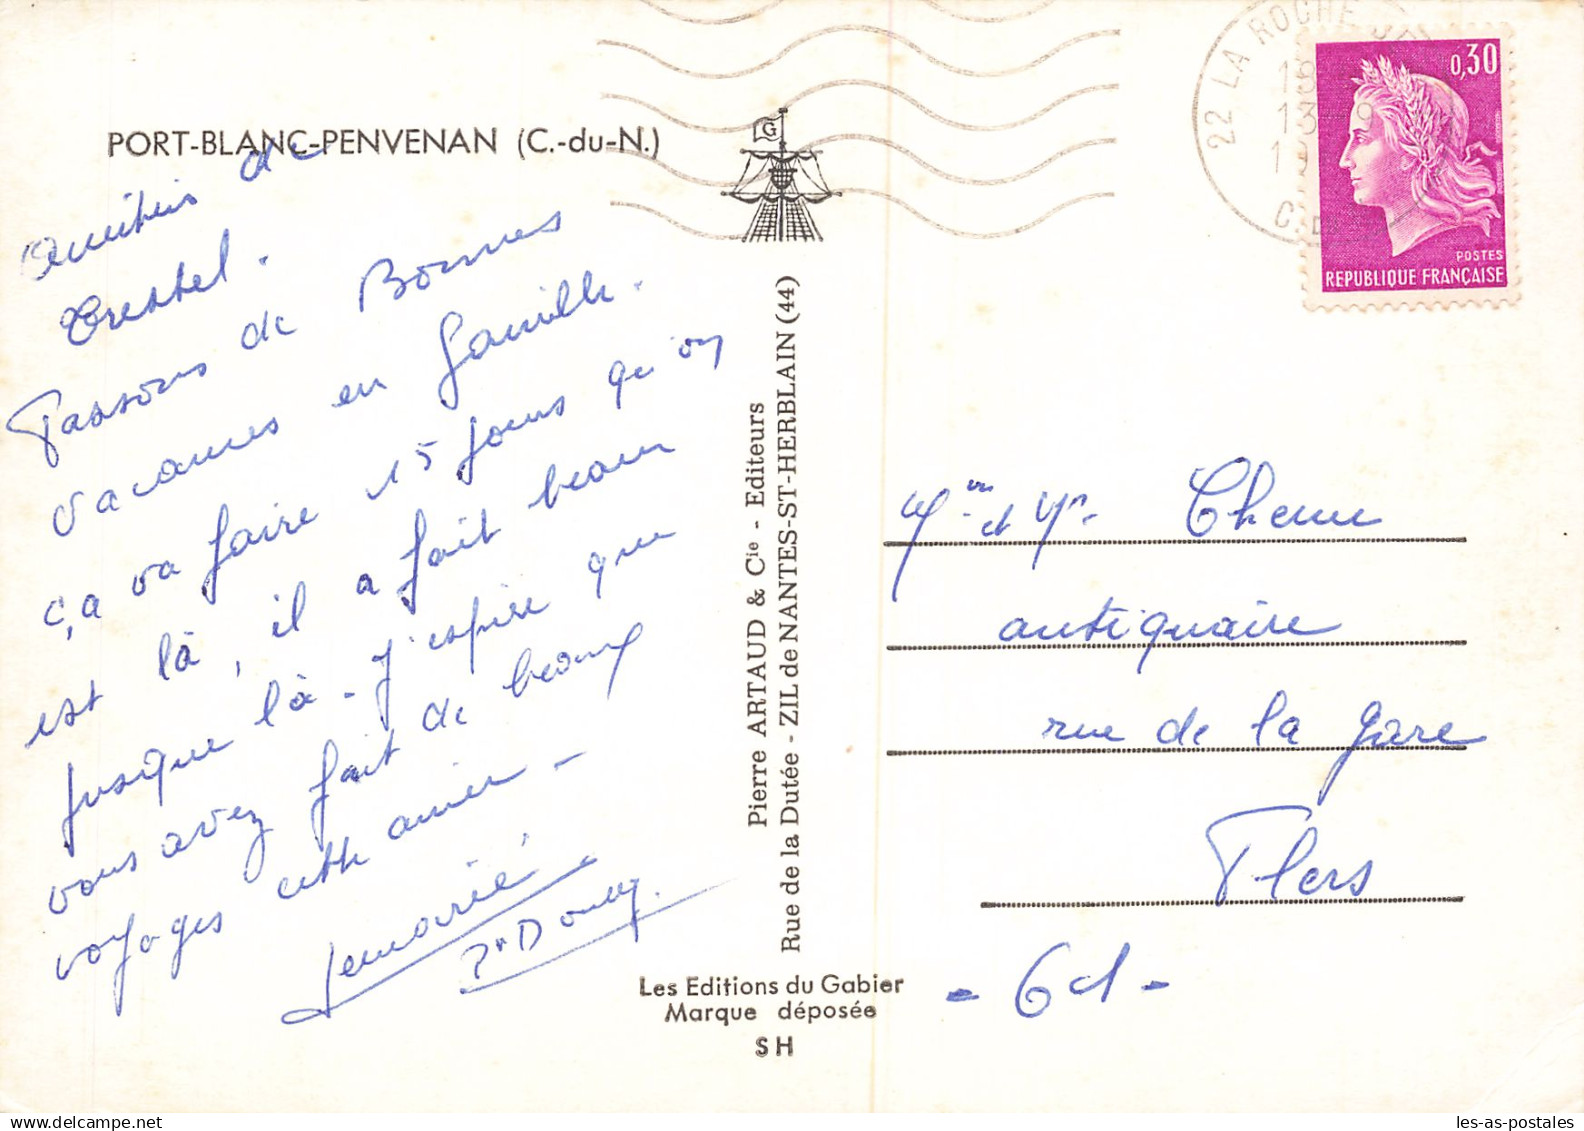 PORT-BLANC-PENVENAN (C.-du-N.)
G
Amitiés de
Trestel.
Passons de Bonnes
vacances en famille.
ça va faire 15 jours qu'on
est là, il a fait beau
jusque là - J'espère que
vous avez fait de beaux
voyages cette année -
Lemarié
Pierre ARTAUD & Cie - Editeurs
Rue de la Dutée - ZIL de NANTES-ST-HERBLAIN (44)
Les Editions du Gabier
Marque déposée
SH
22 LA ROCHE
18
13
0,30
POSTES
REPUBLIQUE FRANÇAISE
Mme et Mr.
antiquaire
rue de la gare
Flers
- 61 -
les-as-postales